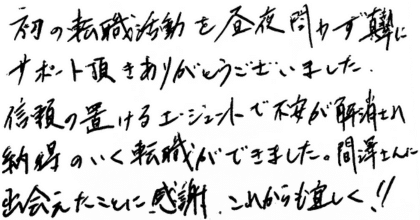 初の転職活動を昼夜問わず真摯に
サポート頂きありがとうございました.
信頼の置けるエージェントで不安が解消され
納得のいく転職ができました。間澤さんに
出会えたことに感謝.これからも宜しく!!